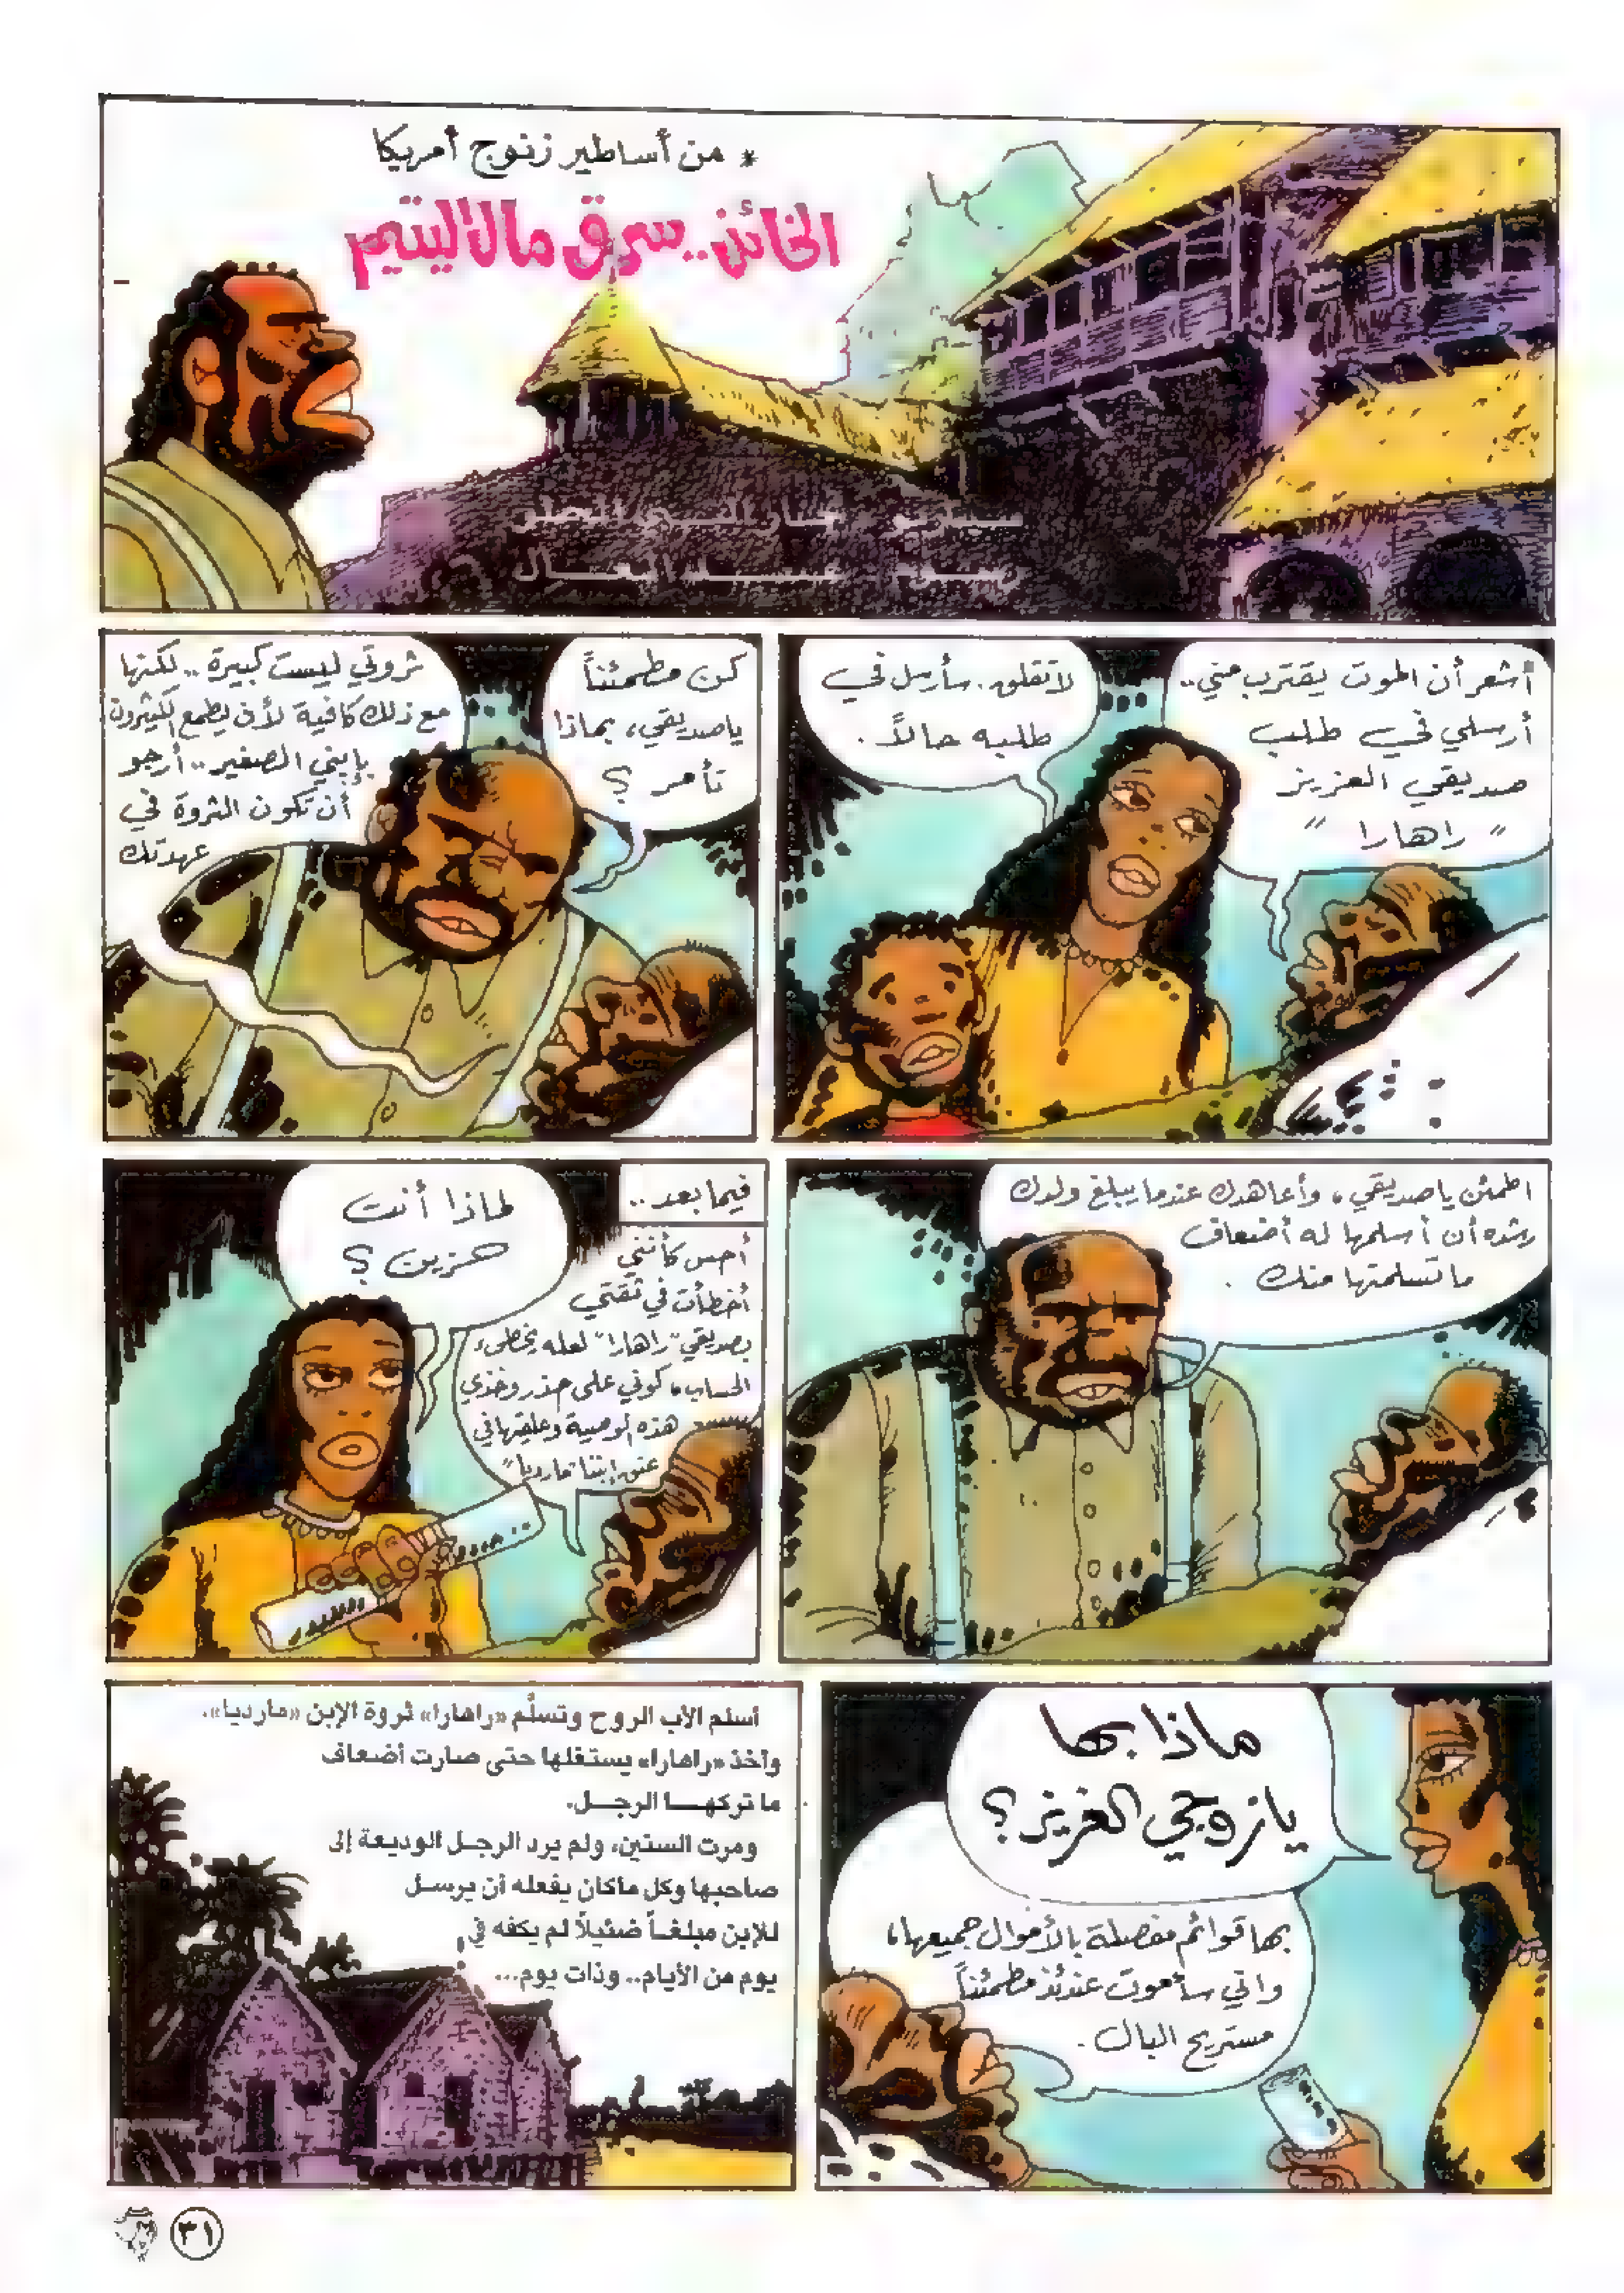 * من أساطير زنوج أمريكا
الخائن.. سرق مال اليتيم
أشعر أن الموت يقترب مني..
أرسلي في طلب
صديقي العزيز
"راهارا"
لا تقلق. سأرسل في
طلبه حالاً.
كن مطمئناً
ياصديقي، بماذا
تأمر؟
ثروتي ليست كبيرة.. لكنها
مع ذلك كافية لأن يطمع الكثيرون
بإبني الصغير.. أرجو
أن تكون الثروة في
عهدتك
اطمئن ياصديقي، وأعاهدك عندما يبلغ ولدك
رشده أن أسلمها له أضعاف
ما تسلمتها منك.
فيما بعد..
لماذا أنت
حزين؟
أحس كأنني
أخطأت في ثقتي
بصديقي "راهارا" لعله يخطىء
الحساب، كوني على حذر وخذي
هذه الوصية وعلقيها في
عنق إبننا "مارديا"
ماذا بها
يازوجي العزيز؟
بها قوائم مفصلة بالأموال جميعها،
واني سأموت عندئذ مطمئناً
مستريح البال.
أسلم الأب الروح وتسلَّم «راهارا» ثروة الإبن «مارديا»،
وأخذ «راهارا» يستغلها حتى صارت أضعاف
ما تركهـا الرجـل.
ومرت السنين، ولم يرد الرجل الوديعة إلى
صاحبها وكل ماكان يفعله أن يرسل
للإبن مبلغـاً ضئيلاً لم يكفه في
يوم من الأيام.. وذات يوم...
٣١